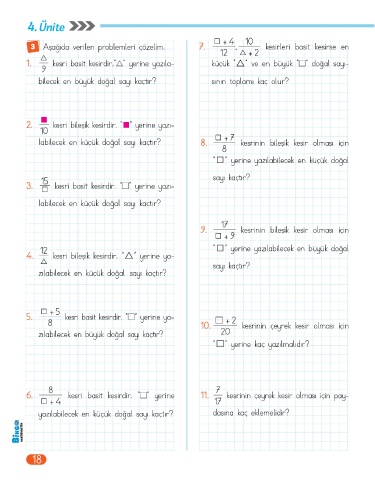 4. Ünite
3 Aşağıda verilen problemleri çözelim.
1. △/9 kesri basit kesirdir. "△" yerine yazıla-
bilecek en büyük doğal sayı kaçtır?
2. ■/10 kesri bileşik kesirdir. "■" yerine yazı-
labilecek en küçük doğal sayı kaçtır?
3. 15/□ kesri basit kesirdir. "□" yerine yazı-
labilecek en küçük doğal sayı kaçtır?
4. 12/△ kesri bileşik kesirdir. "△" yerine ya-
zılabilecek en küçük doğal sayı kaçtır?
5. □ + 5/8 kesri basit kesirdir. "□" yerine ya-
zılabilecek en büyük doğal sayı kaçtır?
6. 8/□ + 4 kesri basit kesirdir. "□" yerine
yazılabilecek en küçük doğal sayı kaçtır?
7. □ + 4/12, 10/△ + 2 kesirleri basit kesirse en
küçük "△" ve en büyük "□" doğal sayı-
sının toplamı kaç olur?
8. □ + 7/8 kesrinin bileşik kesir olması için
"□" yerine yazılabilecek en küçük doğal
sayı kaçtır?
9. 17/□ + 9 kesrinin bileşik kesir olması için
"□" yerine yazılabilecek en büyük doğal
sayı kaçtır?
10. □ + 2/20 kesrinin çeyrek kesir olması için
"□" yerine kaç yazılmalıdır?
11. 7/17 kesrinin çeyrek kesir olması için pay-
dasına kaç eklemelidir?
18